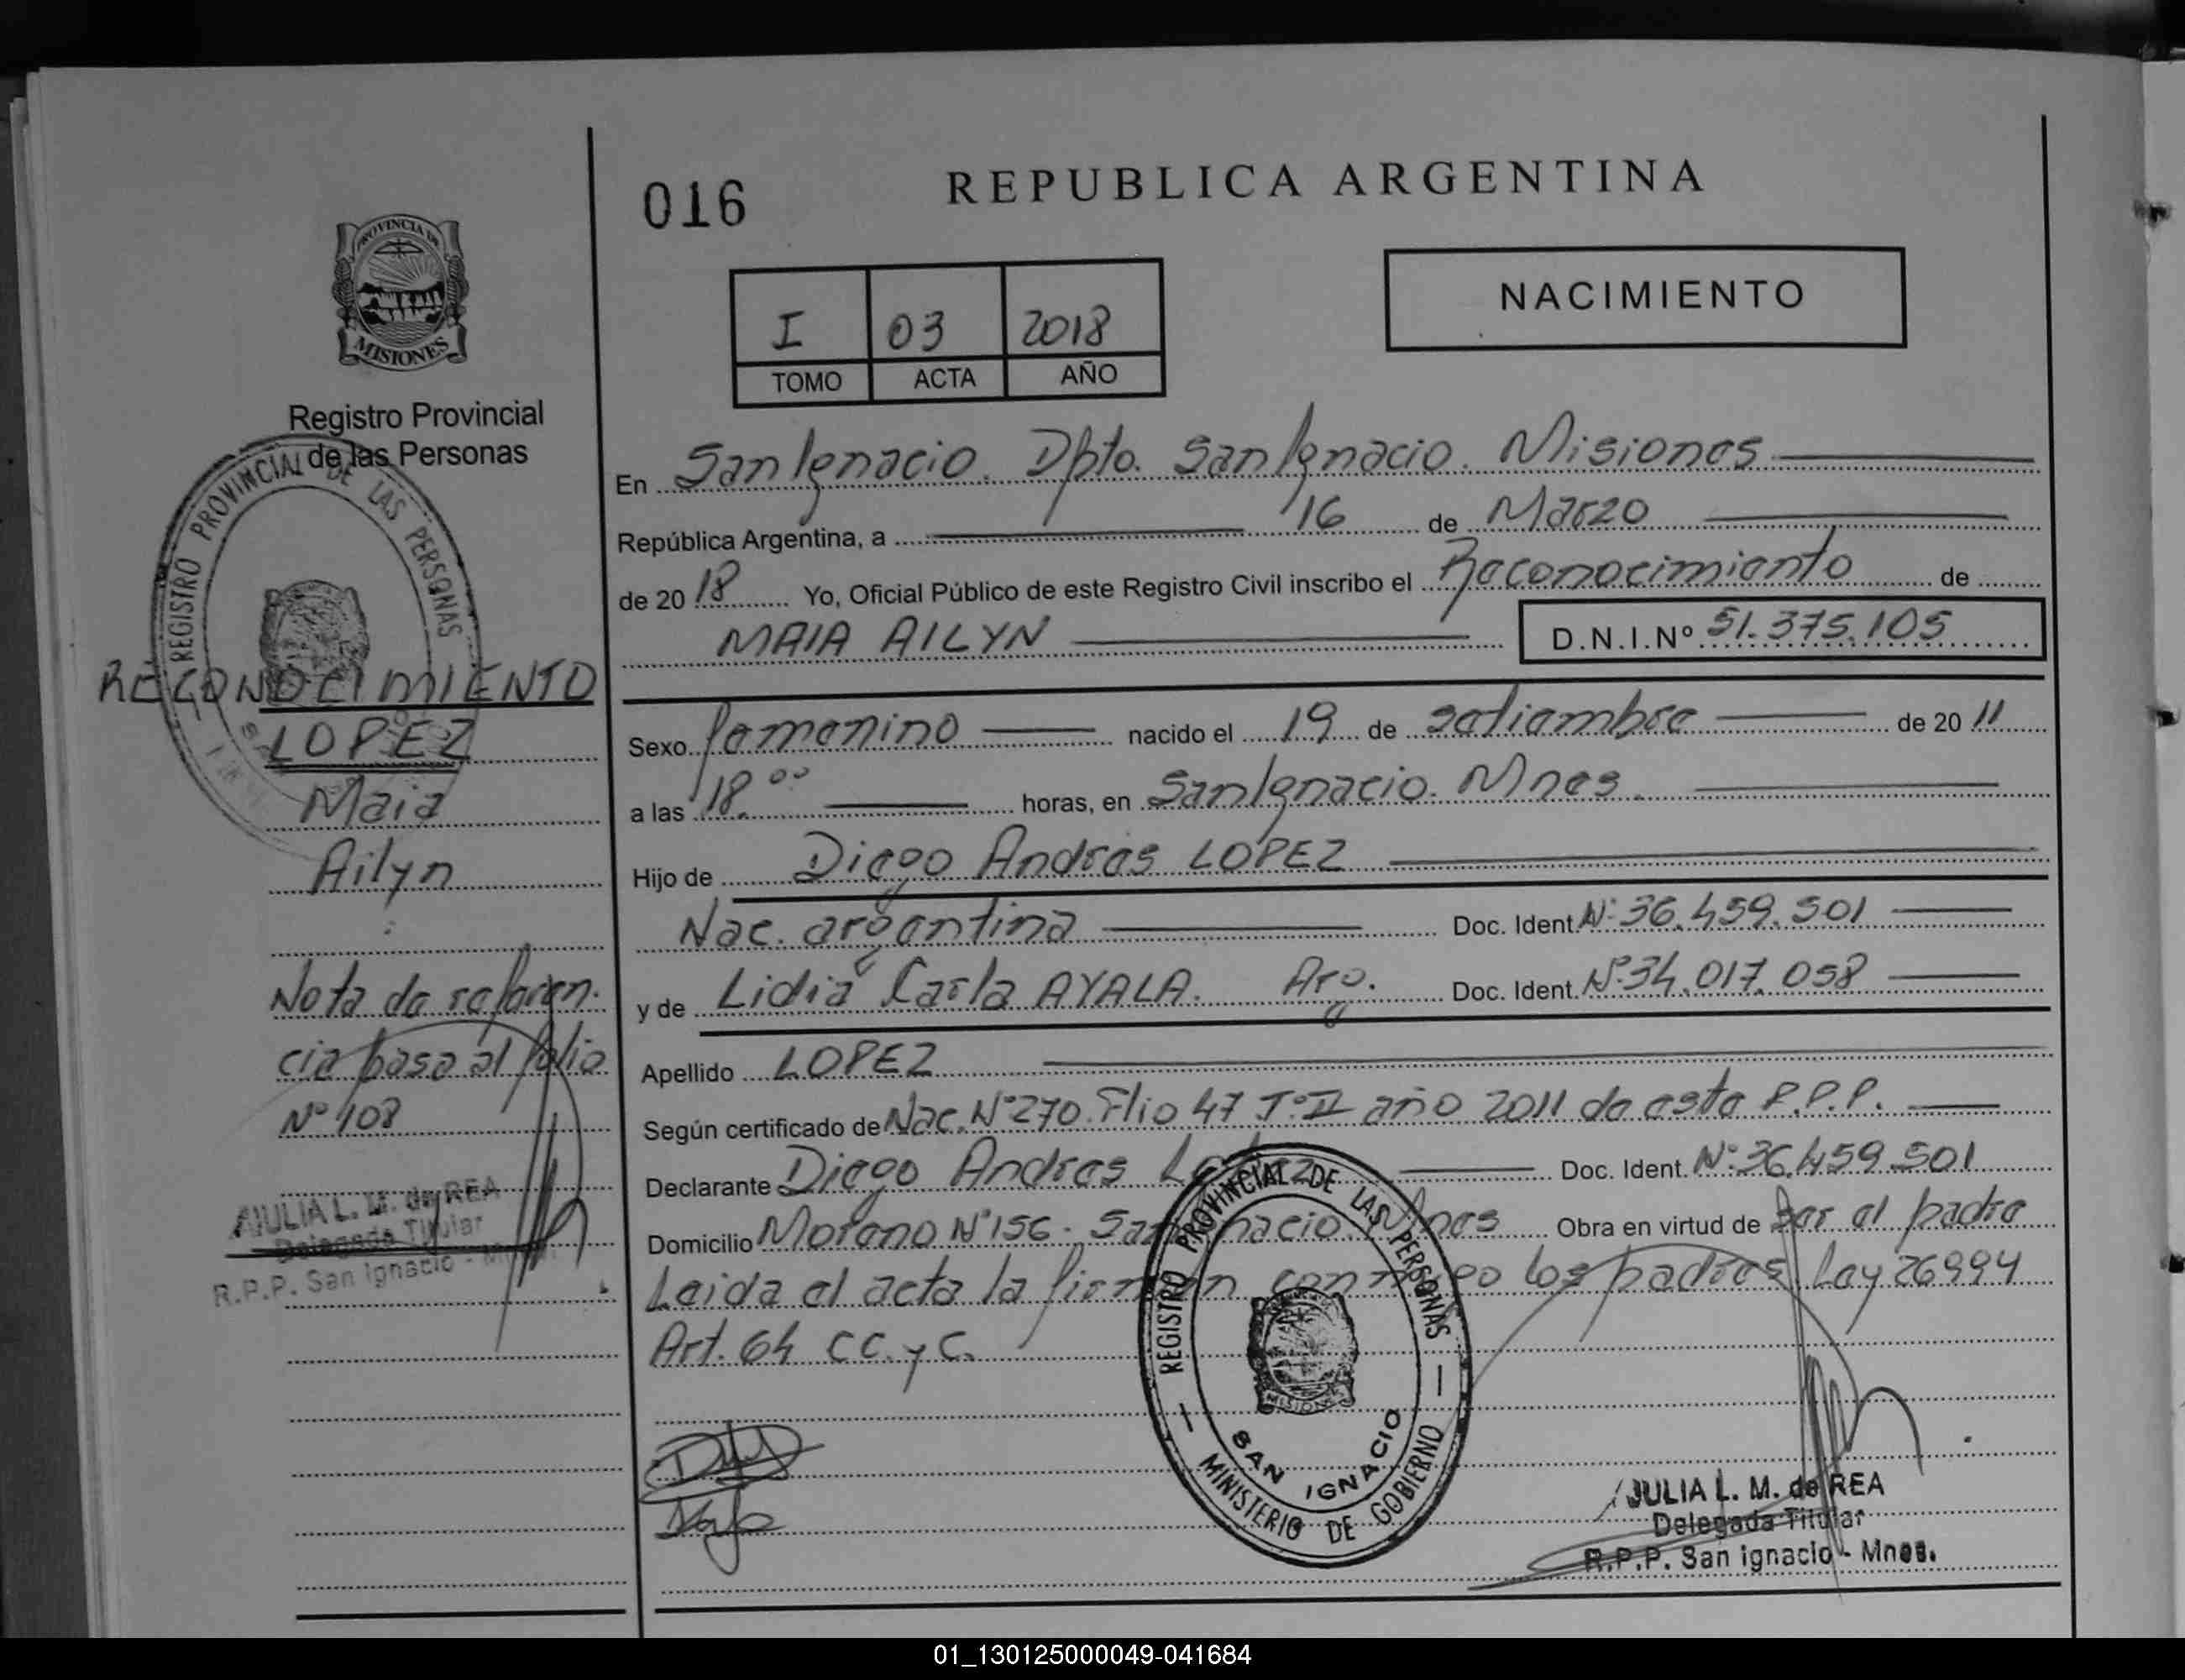 016
REPUBLICA ARGENTINA
NACIMIENTO
I 03 2018
TOMO ACTA AÑO
PROVINCIA DE
MISIONES
Registro Provincial
de las Personas
REGISTRO PROVINCIAL DE LAS PERSONAS
RECONOCIMIENTO
LOPEZ
Maia
Ailyn
Nota de referen.
cia pasa al folio
Nº 108
JULIA L. M. de REA
Delegada Titular
R.P.P. San Ignacio -
En San Ignacio. Dpto. San Ignacio. Misiones
República Argentina, a 16 de Marzo
de 2018 Yo, Oficial Público de este Registro Civil inscribo el Reconocimiento de
MAIA AILYN D.N.I.Nº 51.375.105
Sexo femenino nacido el 19 de setiembre de 2011
a las 18.00 horas, en San Ignacio. Mnes.
Hijo de Diego Andres LOPEZ
Nac. argentina Doc. Ident. Nº 36.459.501
y de Lidia Carla AYALA. Arg. Doc. Ident. Nº 34.017.058
Apellido LOPEZ
Según certificado de Nac. Nº 270. Flio 47 Tº II año 2011 de este R.P.P.
Declarante Diego Andres Lopez Doc. Ident. Nº 36.459.501
Domicilio Moreno Nº 156 - San Ignacio. Mnes Obra en virtud de ser el padre
Leida el acta la firman conmigo los padres Ley 26994
Art. 64 CC. y C.
REGISTRO PROVINCIAL DE LAS PERSONAS
MISIONES
SAN IGNACIO
MINISTERIO DE GOBIERNO
JULIA L. M. de REA
Delegada Titular
R.P.P. San Ignacio - Mnes.
01_130125000049-041684